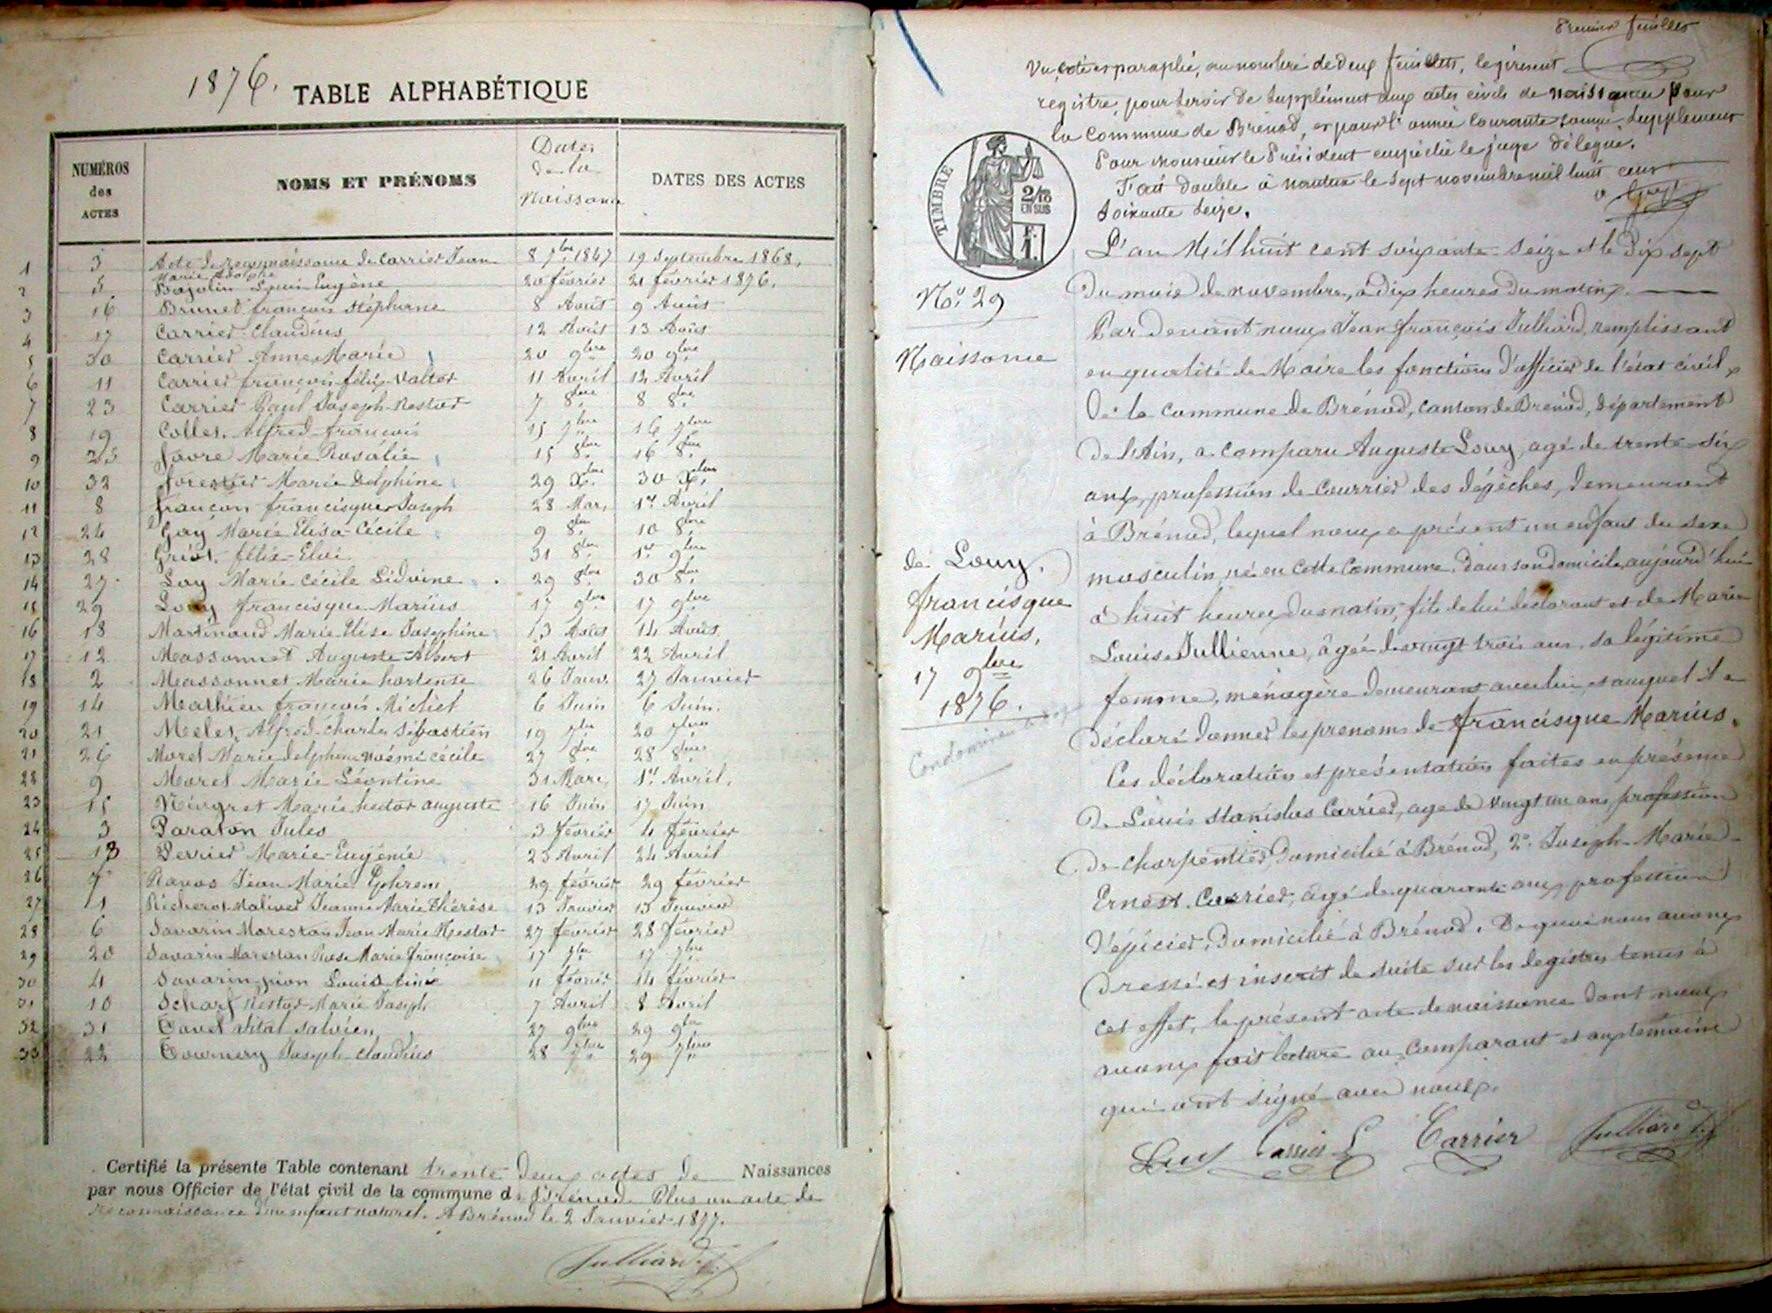 1876.
TABLE ALPHABÉTIQUE
NUMÉROS des ACTES
NOMS ET PRÉNOMS
Dates de la Naissance
DATES DES ACTES
1 3 Acte de reconnaissance de Carrier Jean 8 7bre 1847 19 Septembre 1868.
2 5 Marie Adolphe Bajolin Louis Eugène 20 février 21 février 1876.
3 16 Brunet françois Stéphane 8 Août 9 Août
4 17 Carrier Claudius 12 Août 13 Août
5 30 Carrier Anne Marie 20 9bre 20 9bre
6 11 Carrier françois félix Valter 11 Avril 12 Avril
7 23 Carrier Paul Joseph Nestor 7 8bre 8 8bre
8 19 Collet Alfred françois 15 7bre 16 7bre
9 25 favre Marie Rosalie 15 8bre 16 8bre
10 32 forestier Marie Delphine 29 Xbre 30 Xbre
11 8 françon francisque Joseph 28 Mars 1er Avril
12 24 Gay Marie Elisa Cécile 9 8bre 10 8bre
13 28 Griot Elie Eloi 31 8bre 1er 9bre
14 27 Loy Marie Cécile Lidvine 29 8bre 30 8bre
15 29 Louy francisque Marius 17 9bre 17 9bre
16 18 Martinand Marie Elise Josephine 13 Août 14 Août
17 12 Massonnet Auguste Albert 21 Avril 22 Avril
18 2 Massonnet Marie hortense 26 Janv. 27 Janvier
19 14 Mathieu françois Michel 6 Juin 6 Juin.
20 21 Melet Alfred Charles Sébastien 19 7bre 20 7bre
21 26 Morel Marie Delphine Noémi Cécile 27 8bre 28 8bre
22 9 Morel Marie Léontine 31 Mars 1er Avril.
23 15 Nivgret Marie hector auguste 16 Juin 17 Juin
24 3 Paraton Jules 3 février 4 février
25 13 Perrier Marie Eugénie 23 Avril 24 Avril
26 7 Ravos Jean Marie Ephrem 29 février 29 février
27 1 Richerot Malivert Jeanne Marie Thérèse 13 Janvier 13 Janvier
28 6 Savarin Marestan Jean Marie Nestor 27 février 28 février
29 20 Savarin Marestan Rose Marie françoise 17 7bre 17 7bre
30 4 Savarin pion Louis Aimé 11 février 14 février
31 10 Scharf Nestor Marie Joseph 7 Avril 8 Avril
32 31 Tavel vital Salvien 27 9bre 29 9bre
33 22 Tournery Joseph Claudius 28 7bre 29 7bre
Certifié la présente Table contenant trente deux actes de Naissances
par nous Officier de l'état civil de la commune d. Brénod. Plus un acte de
reconnaissance d'un enfant naturel. A Brénod le 2 Janvier 1877.
Julliard
Premier feuillet
Vu, coté et paraphé, au nombre de deux feuillets, le présent
registre, pour servir de supplément aux actes civils de naissances pour
la commune de Brénod, et pour l'année courante supplément
Pour Monsieur le Président empêché le juge délégué.
Fait double à nantua le sept novembre mil huit cent
soixante seize.
TIMBRE
2/10 EN SUS
No. 29
Naissance
de Louy.
francisque
Marius.
17 9bre
1876.
L'an Mil huit cent soixante seize et le Dix sept
du mois de novembre, à dix heures du matin,
Par devant nous Jean françois Julliard, remplissant
en qualité de Maire les fonctions d'officier de l'état civil,
de la commune de Brénod, canton de Brénod, département
de l'Ain, a comparu Auguste Louy, agé de trente-six
ans, profession de Courrier des dépêches, demeurant
à Brénod, lequel nous a présent un enfant du sexe
masculin, né en cette commune, dans son domicile, aujourd'hui
à huit heures du matin, fils de lui déclarant et de Marie
Louise Jullienne, âgée de vingt trois ans, sa légitime
femme, ménagère demeurant avec lui, et auquel il a
déclaré donner les prenoms de francisque Marius.
Ces déclaration et présentation faites en présence
de Louis Stanislas Carrier, agé de vingt un ans, profession
de charpentier, domicilié à Brénod, 2° Joseph-Marie-
Ernest Carrier, agé de quarante ans, profession
d'épicier, domicilié à Brénod. De quoi nous avons
dressé et inscrit de suite sur les registres tenus à
cet effet, le présent acte de naissance dont nous
avons fait lecture au comparant et aux témoins
qui ont signé avec nous.
Louy Carrier L Carrier Julliard